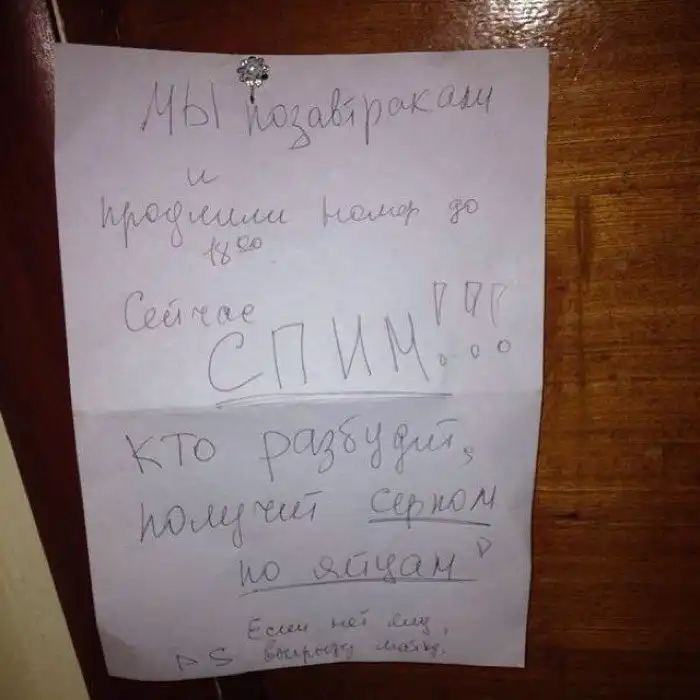 МЫ позавтракали
и
продлили номер до
18 00
Сейчас
СПИМ!!!
кто разбудит,
получит серпом
по яйцам!
Если нет яиц,
PS вырвЗу матку.